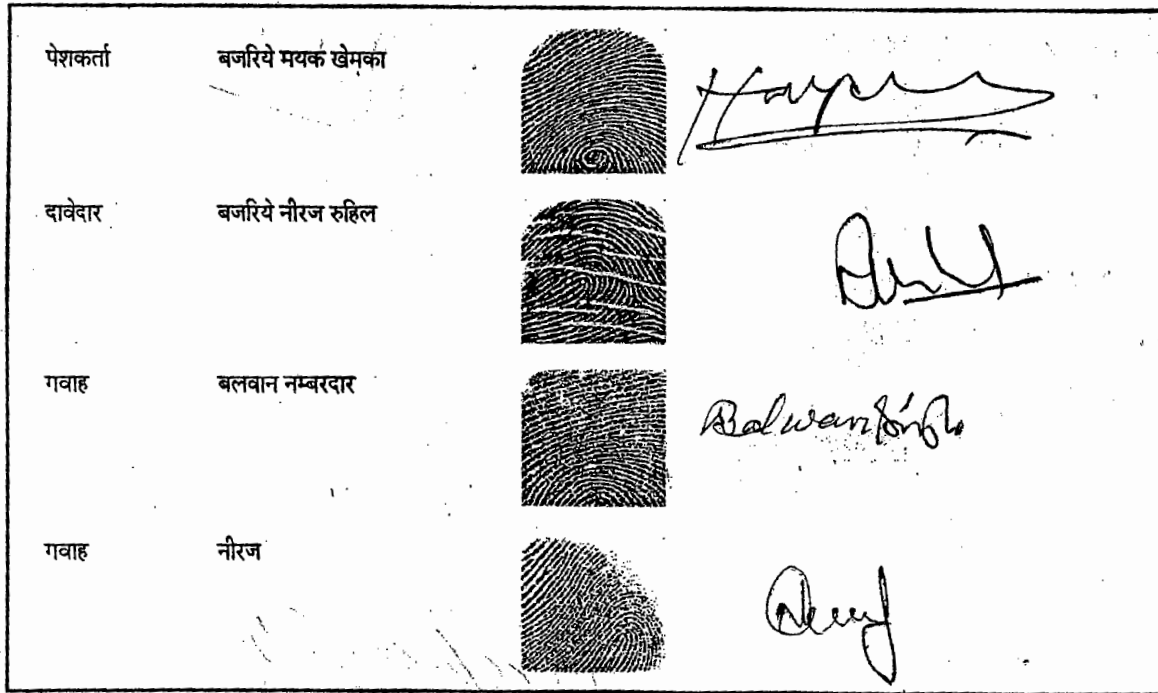 पेशकर्ता बजरिये मयक खेमका
दावेदार बजरिये नीरज रुहिल
गवाह बलवान नम्बरदार
Balwan Singh
गवाह नीरज